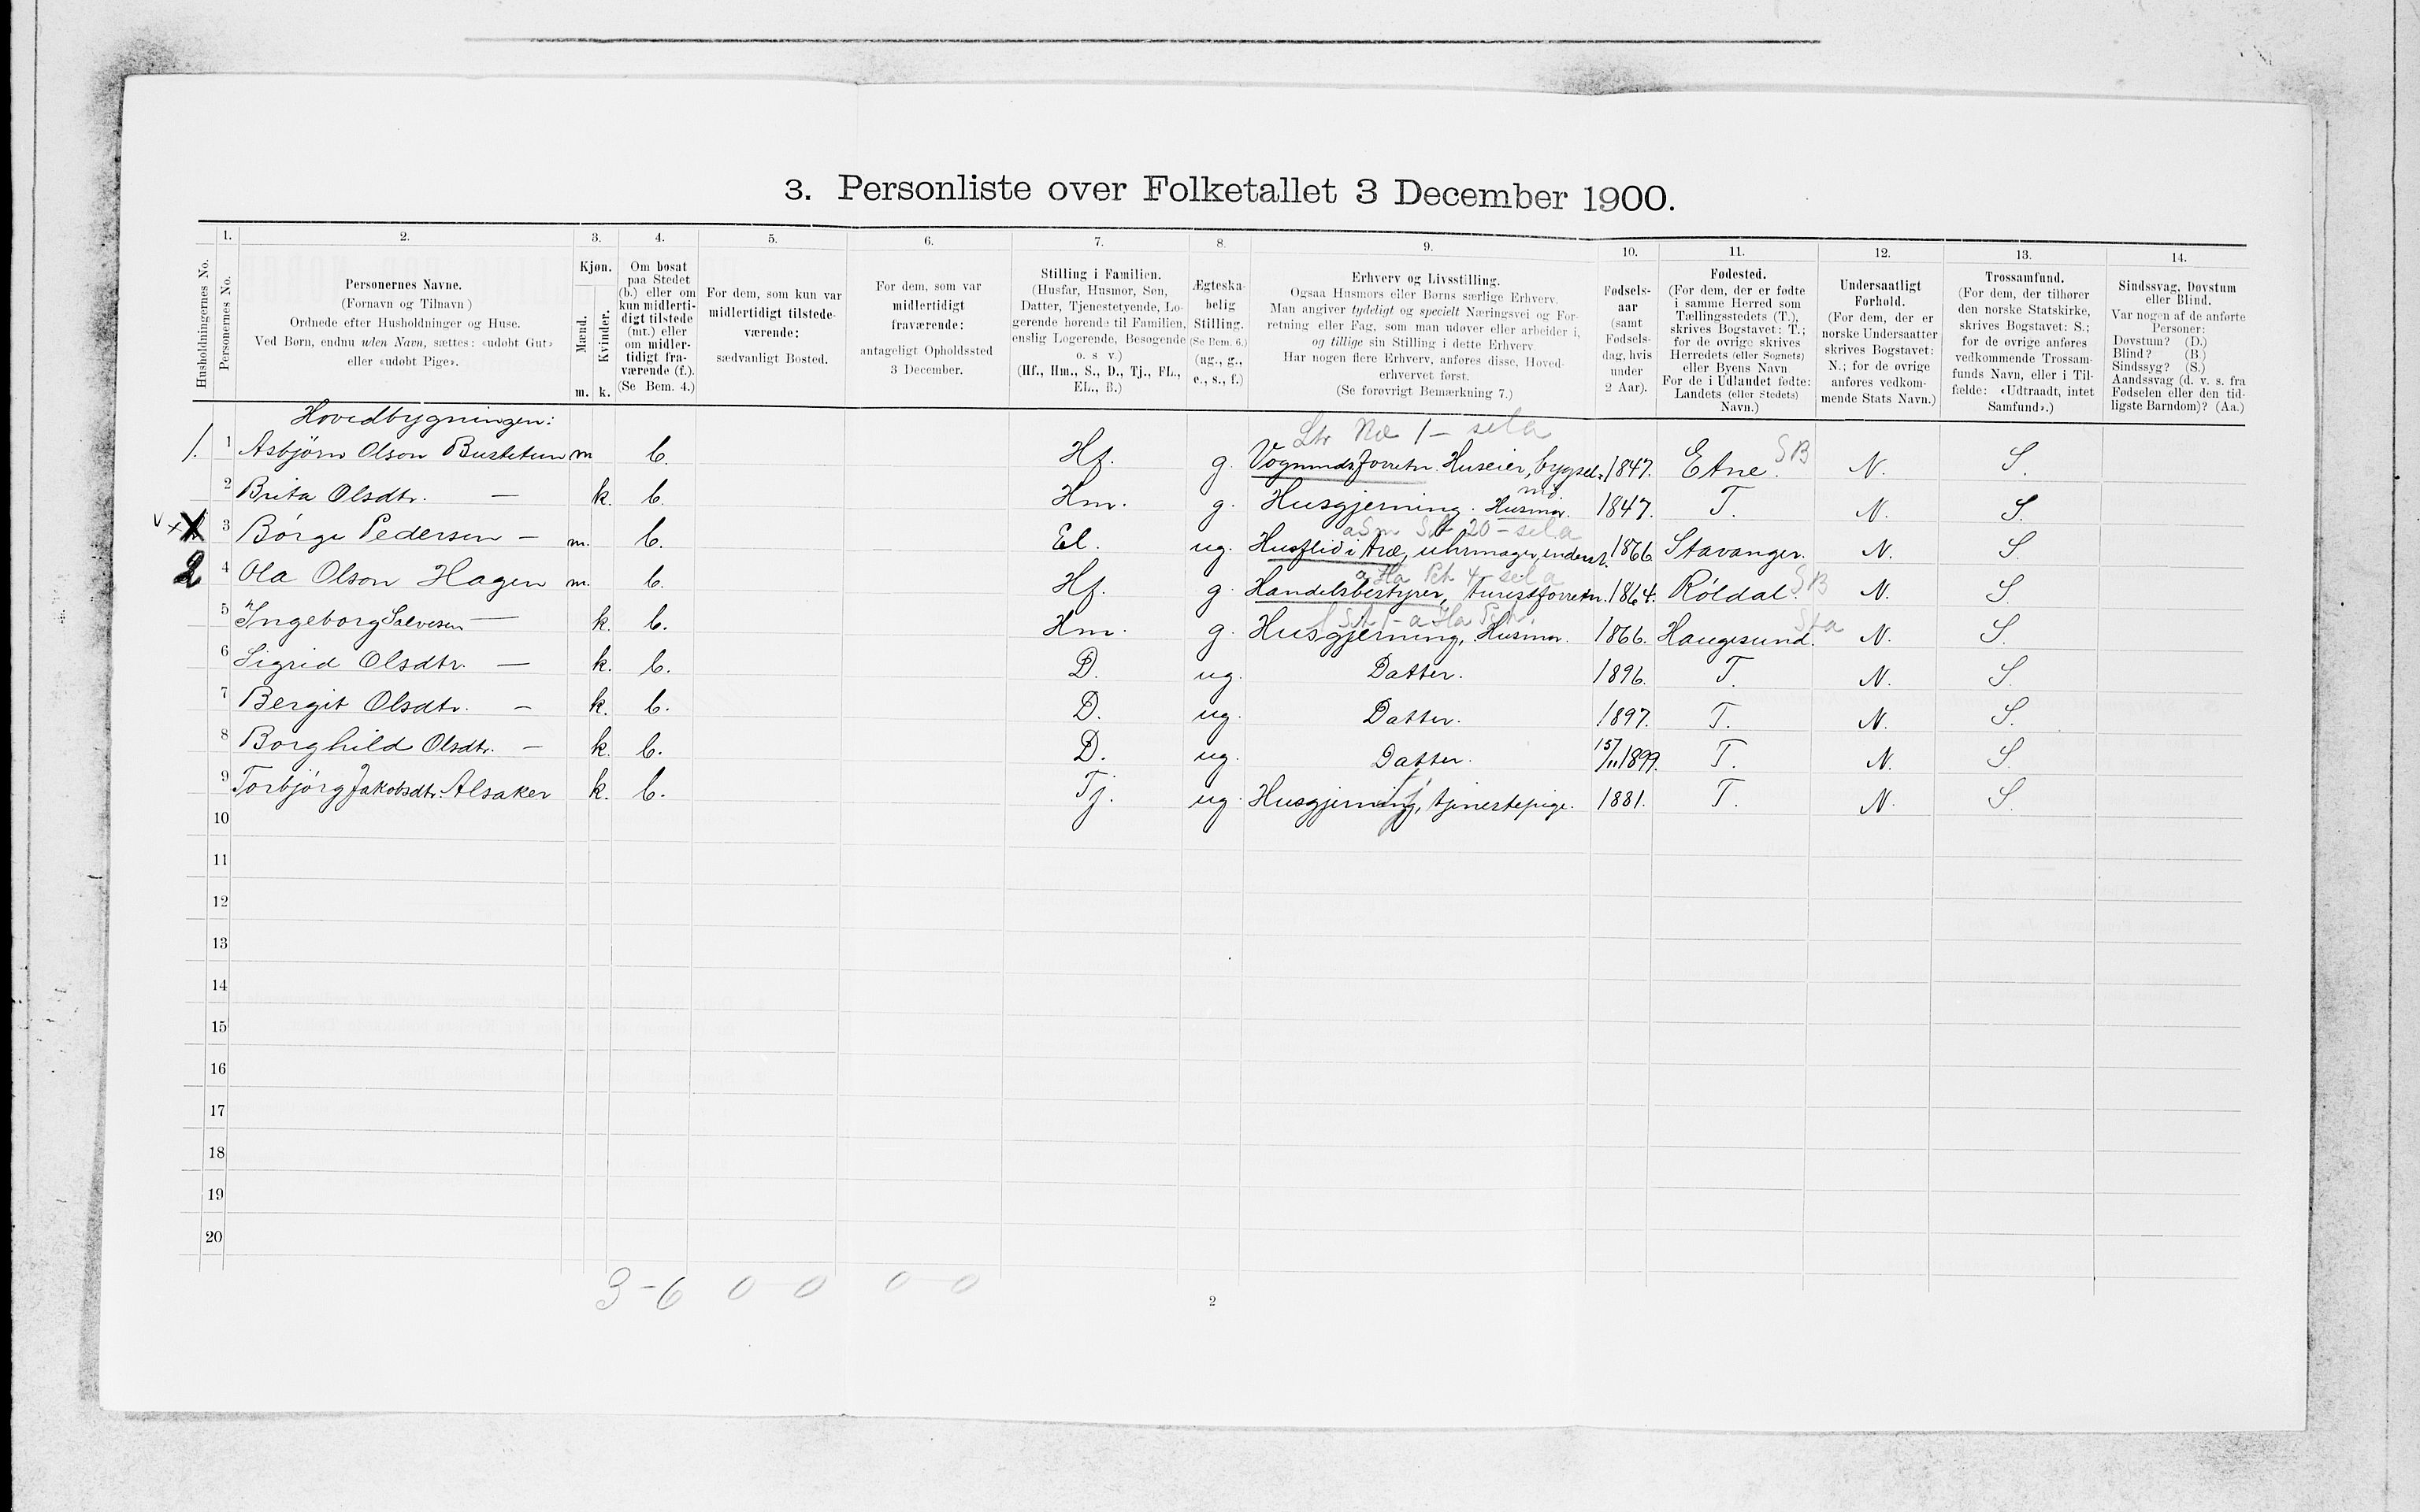 3. Personliste over Folketallet 3 December 1900.
1. 2. 3. 4. 5. 6. 7. 8. 9. 10. 11. 12. 13. 14.
Husholdningernes No.
Personernes No.
Personernes Navne.
(Fornavn og Tilnavn)
Ordnede efter Husholdninger og Huse.
Ved Børn, endnu uden Navn, sættes: «udøbt Gut»
eller «udøbt Pige».
Kjøn.
Mænd.
Kvinder.
m. k.
Om bosat
paa Stedet
(b.) eller om
kun midlerti-
digt tilstede
(mt.) eller
om midler-
tidigt fra-
værende (f.).
(Se Bem. 4.)
For dem, som kun var
midlertidigt tilstede-
værende:
sædvanligt Bosted.
For dem, som var
midlertidigt
fraværende:
antageligt Opholdssted
3 December.
Stilling i Familien.
(Husfar, Husmor, Søn,
Datter, Tjenestetyende, Lo-
gerende hørende til Familien,
enslig Logerende, Besøgende
o. s v.)
(Hf., Hm., S., D., Tj., FL.,
EL., B.)
Ægteska-
belig
Stilling.
(Se Bem. 6.)
(ug., g.,
e., s., f.)
Erhverv og Livsstilling.
Ogsaa Husmors eller Børns særlige Erhverv.
Man angiver tydeligt og specielt Næringsvei og For-
retning eller Fag, som man udøver eller arbeider i,
og tillige sin Stilling i dette Erhverv.
Har nogen flere Erhverv, anføres disse, Hoved-
erhvervet først.
(Se forøvrigt Bemærkning 7.)
Fødsels-
aar
(samt
Fødsels-
dag, hvis
under
2 Aar).
Fødested.
(For dem, der er fødte
i samme Herred som
Tællingsstedets (T.),
skrives Bogstavet: T.;
for de øvrige skrives
Herredets (eller Sognets)
eller Byens Navn
For de i Udlandet fødte:
Landets (eller Stedets)
Navn.)
Undersaatligt
Forhold.
(For dem, der er
norske Undersaatter
skrives Bogstavet:
N.; for de øvrige
anføres vedkom-
mende Stats Navn.)
Trossamfund.
(For dem, der tilhører
den norske Statskirke,
skrives Bogstavet: S.;
for de øvrige anføres
vedkommende Trossam-
funds Navn, eller i Til-
fælde: «Udtraadt, intet
Samfund».)
Sindssvag, Døvstum
eller Blind.
Var nogen af de anførte
Personer:
Døvstum? (D.)
Blind? (B.)
Sindssyg? (S.)
Aandssvag (d. v. s. fra
Fødselen eller den tid-
ligste Barndom)? (Aa.)
Hovedbygningen:
1. 1 Asbjörn Olson m b. Hf. g. Huseier, 1847. Etne. SB N. S.
2 Brita Olsdtr. — k. b. Hm. g. Husgjerning. Husmor. 1847. T. N. S.
3 Börge Pedersen — m. b. El. ug. Husflid i Træ, uhrmager, 1866 Stavanger. N. S.
2 4 Ola Olson Hagen m. b. Hf. g. Handelsbestyrer, turistforretn. 1864. Röldal. SB N. S.
5 Ingeborg Salvesen — k. b. Hm. g. Husgjerning, Husmor. 1866. Haugesund. Sta N. S.
6 Sigrid Olsdtr. — k. b. D. ug. Datter. 1896. T. N. S.
7 Bergit Olsdtr. — k. b. D. ug. Datter. 1897. T. N. S.
8 Borghild Olsdtr. — k. b. D. ug. Datter. 15/11 1899. T. N. S.
9 Torbjörg Jakobsdtr. Alsaker k. b. Tj. ug. Husgjerning, tjenestepige. 1881. T. N. S.
10
11
12
13
14
15
16
17
18
19
20
3-6 0 0 0-0
2